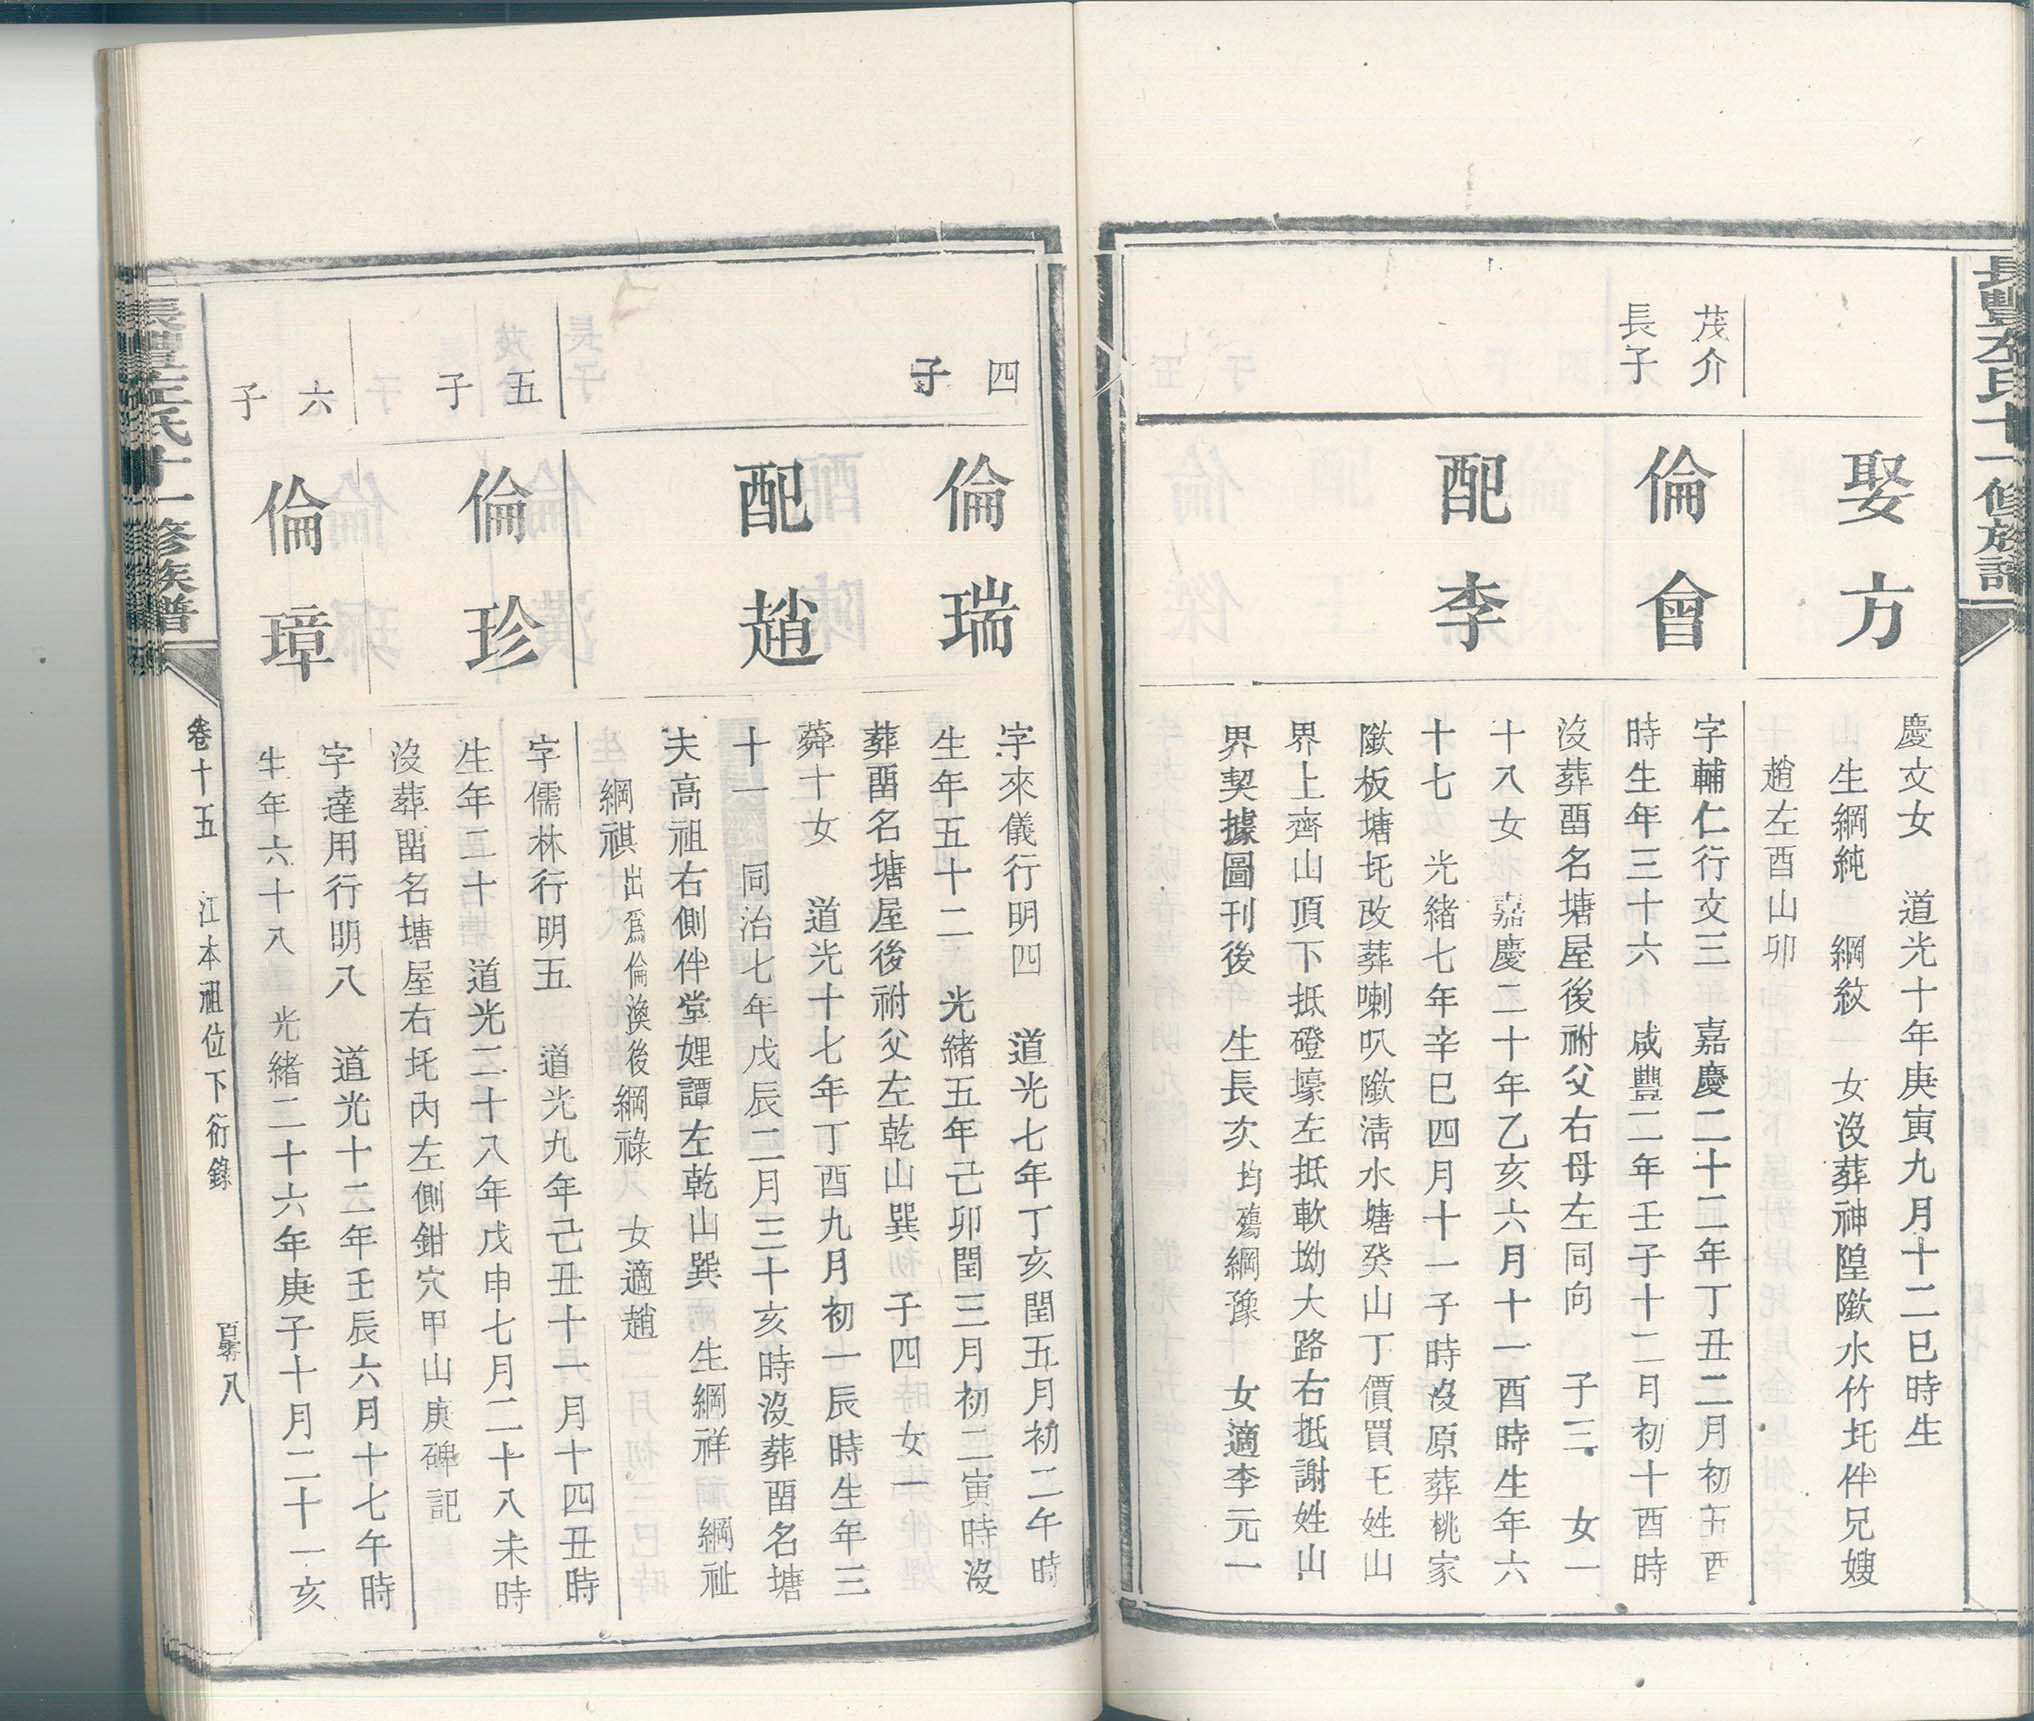 長豐左氏十一修族譜
娶方
慶文女　道光十年庚寅九月十二巳時生
生綱純　綱紋　女沒葬神隍𡼏水竹坨伴兄嫂
趙左酉山卯
茂介
長子
倫會
字輔仁行文三　嘉慶二十二年丁丑二月初五酉
時生年三十六　咸豐二年壬子十二月初十酉時
沒葬畱名塘屋後祔父右母左同向　子三　女一
配李
十八女　嘉慶二十年乙亥六月十一酉時生年六
十七　光緒七年辛巳四月十一子時沒原葬桃家
𡼏板塘坨改葬喇叭𡼏淸水塘癸山丁價買王姓山
界上齊山頂下抵磴壕左抵軟坳大路右抵謝姓山
界契據圖刊後　生長次均殤綱豫　女適李元一
四
子
倫瑞
字來儀行明四　道光七年丁亥閏五月初二午時
生年五十二　光緒五年己卯閏三月初二寅時沒
葬畱名塘屋後祔父左乾山巽　子四　女一
配趙
蕣十女　道光十七年丁酉九月初一辰時生年三
十一　同治七年戊辰二月三十亥時沒葬畱名塘
夫高祖右側伴堂娌譚左乾山巽　生綱祥　綱祉
綱祺出爲倫渙後綱祿　女適趙
五
子
倫珍
字儒林行明五　道光九年己丑十一月十四丑時
生年二十　道光二十八年戊申七月二十八未時
沒葬畱名塘屋右坨內左側鉗穴甲山庚碑記
六
子
倫璋
字達用行明八　道光十二年壬辰六月十七午時
生年六十八　光緒二十六年庚子十月二十一亥
長豐左氏十一修族譜
卷十五　江本祖位下衍錄　百零八